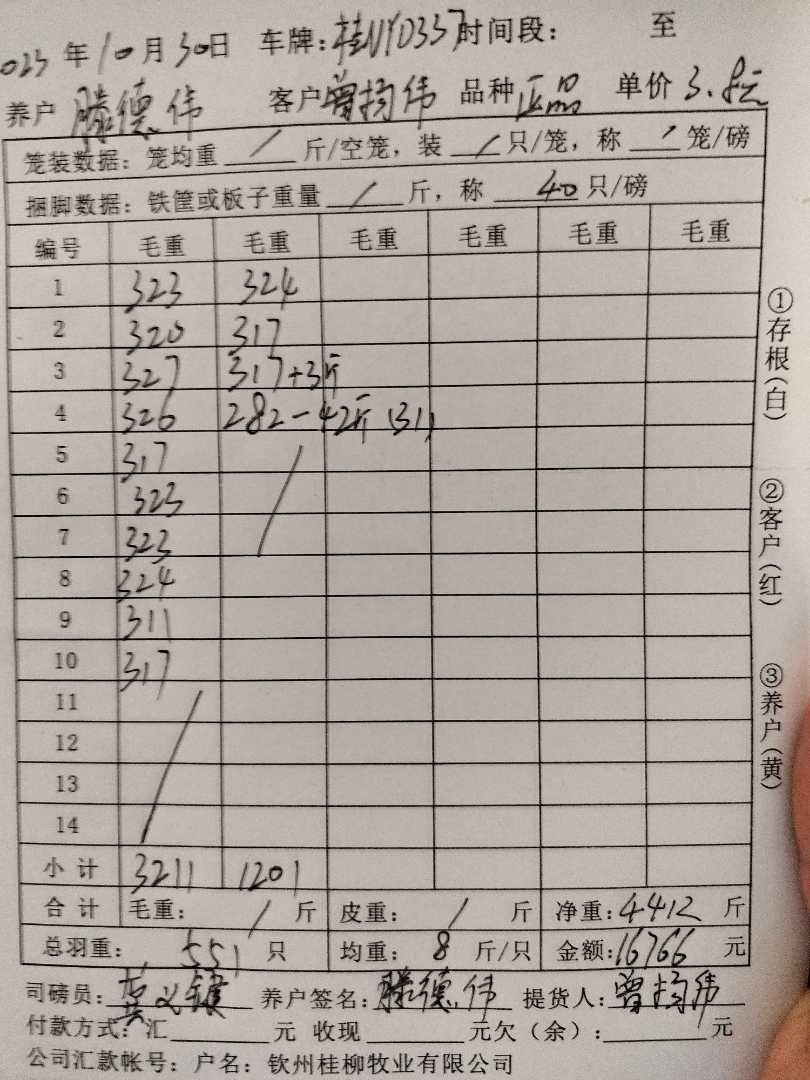 2023年10月30日 车牌:桂NY0337 时间段: 至
养户 滕德伟 客户 曾均伟 品种 正品 单价 3.8元
笼装数据: 笼均重 / 斤/空笼, 装 / 只/笼, 称 / 笼/磅
捆脚数据: 铁筐或板子重量 / 斤, 称 40 只/磅
编号 毛重 毛重 毛重 毛重 毛重 毛重
1 323 324
2 320 317
3 327 317+3斤
4 326 282-42斤 (31)
5 317
6 323
7 323
8 324
9 311
10 317
11
12
13
14
小计 3211 1201
合计 毛重: / 斤 皮重: / 斤 净重:4412 斤
总羽重: 551 只 均重: 8 斤/只 金额:16766 元
司磅员: 养户签名: 滕德伟 提货人: 曾均伟
付款方式: 汇 元 收现 元欠(余): 元
公司汇款帐号: 户名: 钦州桂柳牧业有限公司
①存根(白)
②客户(红)
③养户(黄)